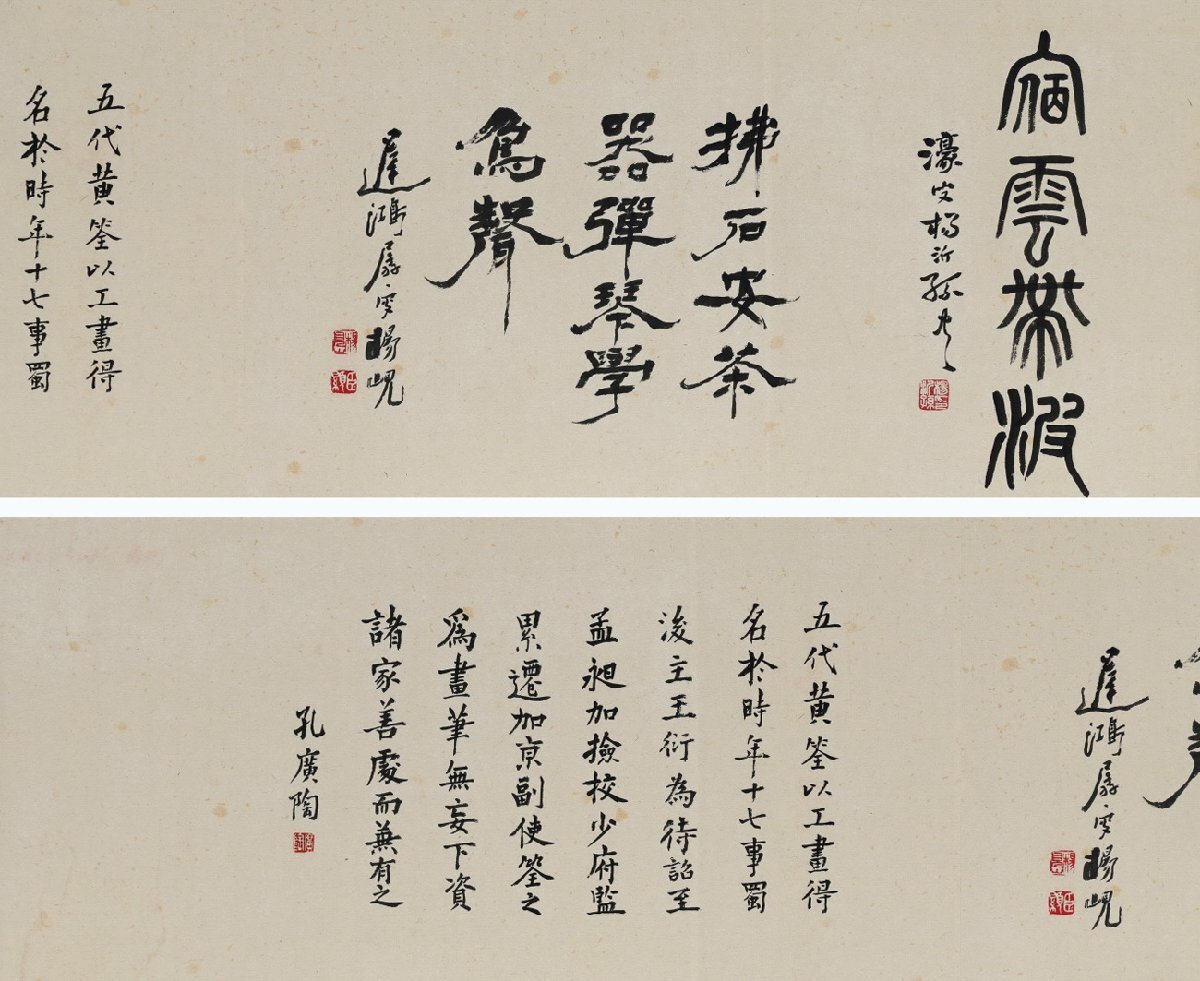 宿雲帶波
濠叟楊沂孫書
拂石安茶
器彈琴學
鳥聲
遲鴻孱叟楊峴
五代黃筌以工畫得
名於時年十七事蜀
遲鴻孱叟楊峴
五代黃筌以工畫得
名於時年十七事蜀
後主王衍為待詔至
孟昶加撿校少府監
累遷加京副使筌之
爲畫筆無妄下資
諸家善處而兼有之
孔廣陶